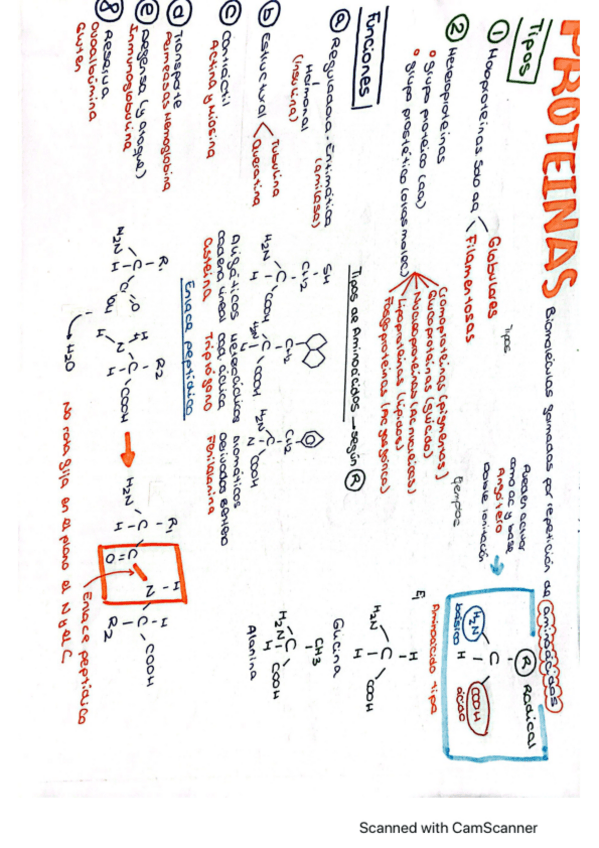 PROTEINAS
Biomoléculas formadas por repetición de aminoácidos
Tipos
① Holoproteínas Solo aa
Globulares
Filamentosas
Tipos
② Heteroproteínas
o Grupo proteico (aa)
o Grupo prostético (otras molec)
Cromoproteínas (pigmentos)
Glucoproteínas (glúcido)
Nucleoproteínas (Ac nucleicos)
Lipoproteínas (lípidos)
Fosfoproteínas (Ac fosfórico)
Ejemplos
Pueden actuar
como ac y base
Anfótero
doble ionización
R Radical
H2N - C - COOH
H
básico
ácido
Aminoácido tipo
Ej
H
H2N - C - COOH
H
Glicina
CH3
H2N - C - COOH
H
Alanina
Funciones
ⓐ Reguladora - Enzimática
(amilasa)
Hormonal
(insulina)
ⓑ Estructural
Tubulina
Queratina
ⓒ Contráctil
Actina y Miosina
ⓓ Transporte
Permeasas Hemoglobina
ⓔ Defensa (y ataque)
Inmunoglobulina
⑧ Reserva
Ovoalbúmina
Gluten
Tipos de Aminoácidos → según R
SH
CH2
H2N - C - COOH
H
CH2
H2N - C - COOH
H
CH2
H2N - C - COOH
H
Alifáticos
cadena lineal
Cisteína
Heterocíclicos
cad. cíclica
Triptófano
Aromáticos
derivados benceno
Fenilalanina
Enlace peptídico
R1
H2N - C - C = O
H
OH
H
R2
N - C - COOH
H
H
→ H2O
R1
H2N - C - C - N - C - COOH
H
O
H
H
R2
Enlace peptídico
No rota/gira en el plano el N y el C.
Scanned with CamScanner